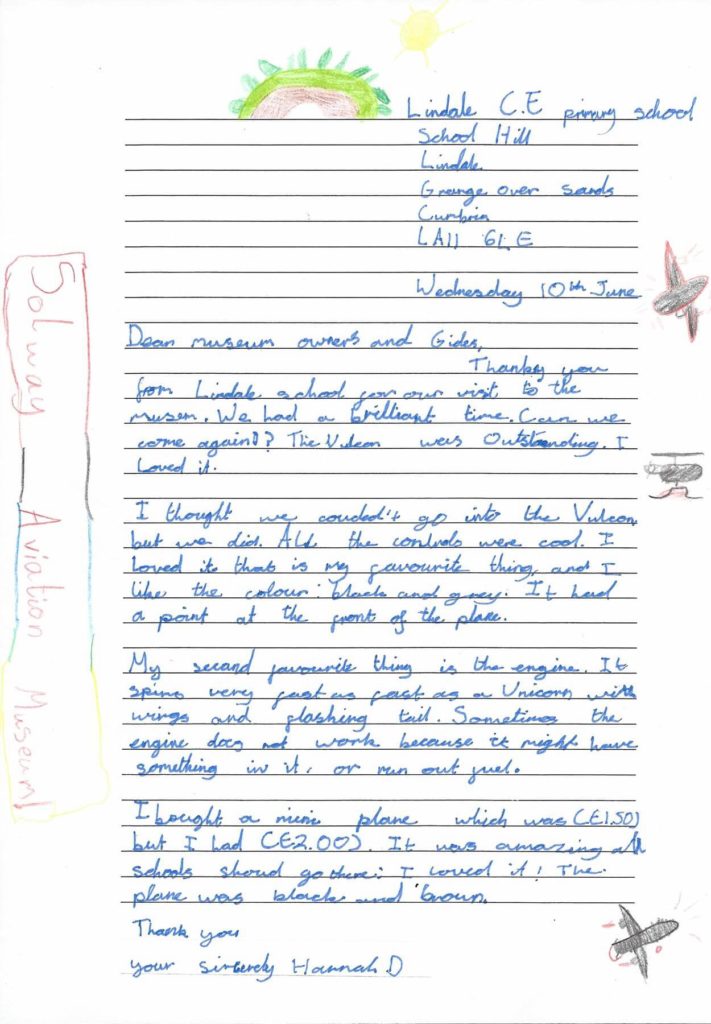 Lindale C.E primary school
School Hill
Lindale
Grange over sands
Cumbria
LA11 6LE
Wednesday 10th June
Dear museum owners and Gides,
Thankyou
from Lindale school for our visit to the
musem. We had a brilliant time. Can we
come again!? The Vulcan was Outstanding. I
Loved it.
I thought we couded't go into the Vulcan
but we did. All the controls were cool. I
loved it that is my favourite thing, and I
like the colour: black and grey. It had
a point at the front of the plane.
My second favourite thing is the engine. It
spins very fast as fast as a Unicorn with
wings and flashing tail. Sometimes the
engine does not work because it might have
something in it, or run out fuel.
I bought a mini plane which was (£1.50)
but I had (£2.00). It was amazing all
schools shoud go there: I loved it! The
plane was black and brown.
Thank you
your sincerely Hannah.D
Solway Aviation Museum!